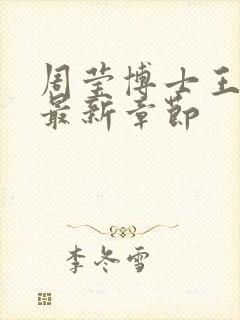 周莹博士王
最新章节
李冬雪